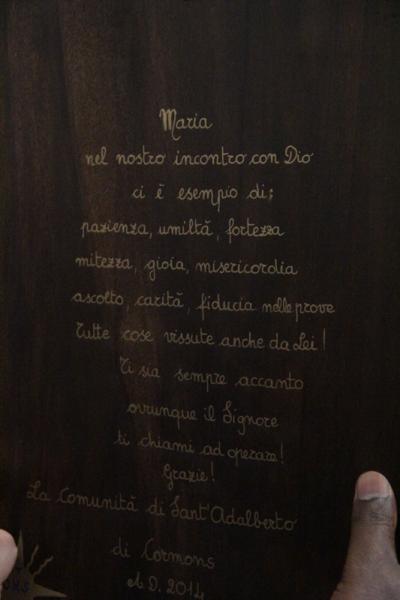 Maria
nel nostro incontro con Dio
ci è esempio di:
pazienza, umiltà, fortezza
mitezza, gioia, misericordia
ascolto, carità, fiducia nelle prove
Tutte cose vissute anche da Lei!
Ti sia sempre accanto
ovunque il Signore
ti chiami ad operare!
Grazie!
La Comunità di Sant'Adalberto
di Cormons
A.D. 2014